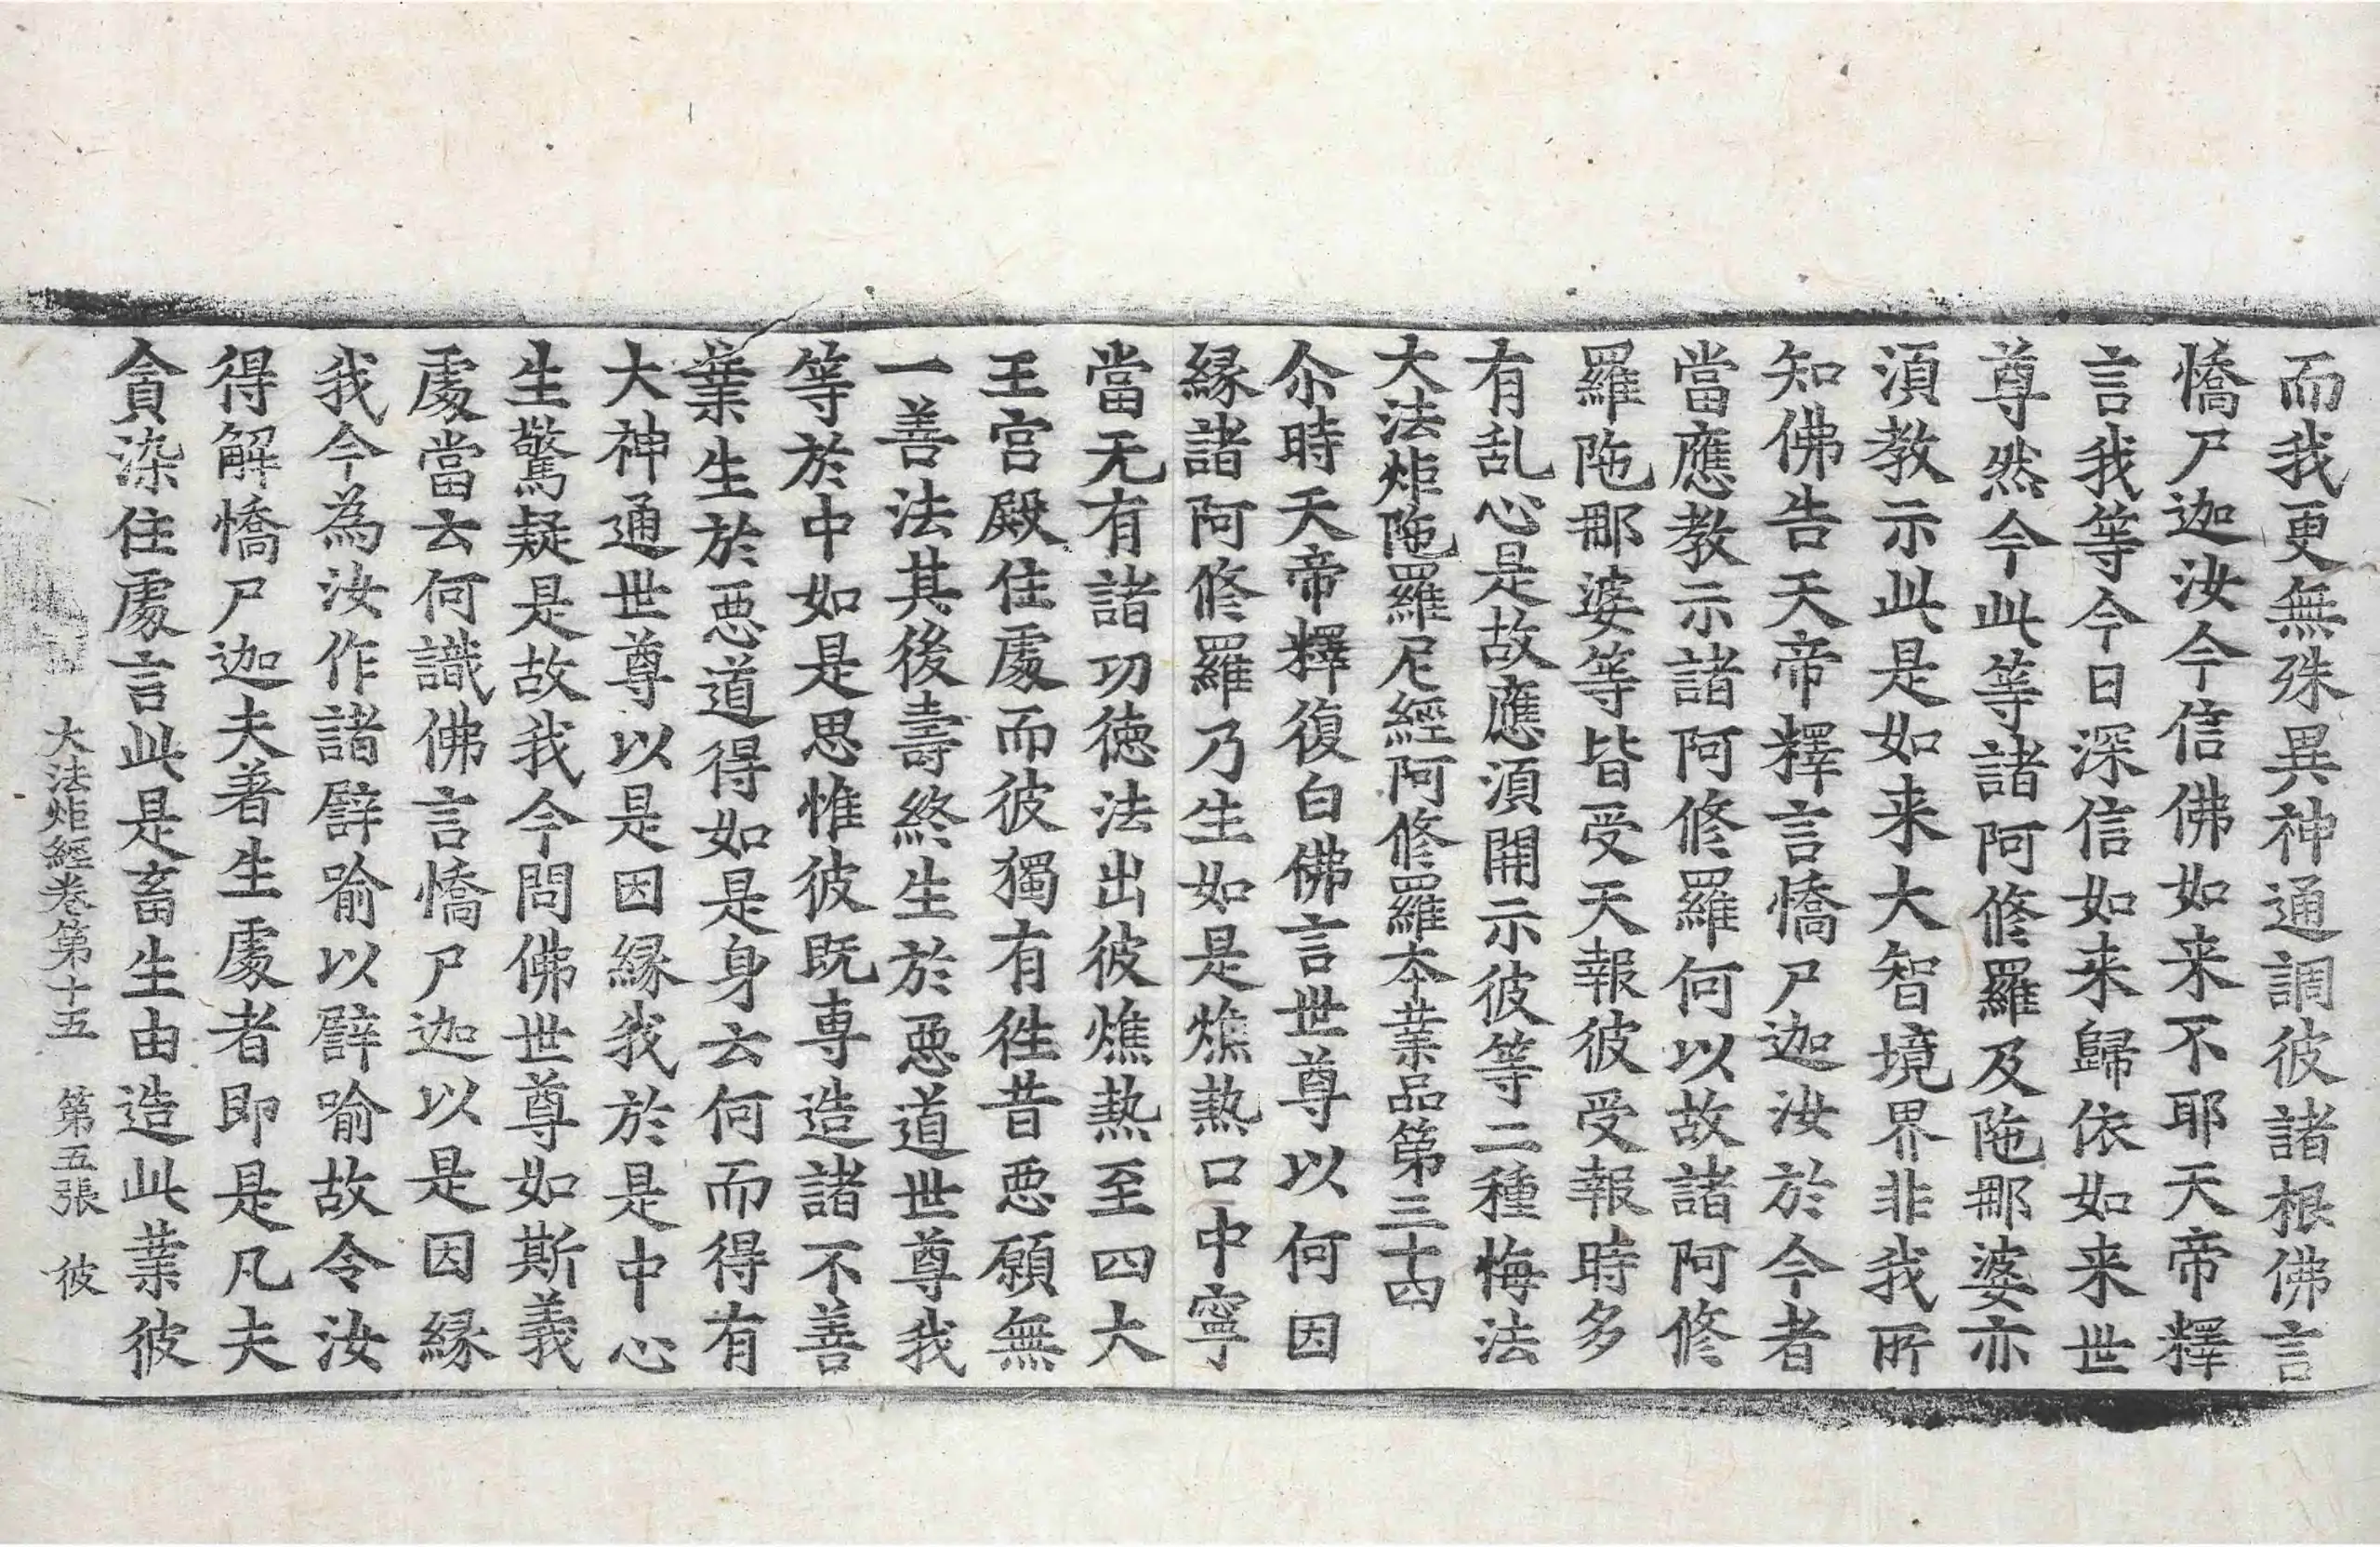 而我更無殊異神通調彼諸根佛言
憍尸迦汝今信佛如来不耶天帝釋
言我等今日深信如来歸依如来世
尊然今此等諸阿修羅及陁郍婆亦
湏教示此是如来大智境界非我所
知佛告天帝釋言憍尸迦汝於今者
當應教示諸阿修羅何以故諸阿修
羅陁郍婆等皆受天報彼受報時多
有乱心是故應湏開示彼等二種悔法
大法炬陁羅尼經阿修羅夲業品第三十四
尒時天帝釋復白佛言世尊以何因
縁諸阿修羅乃生如是燋熱口中寧
當无有諸功徳法出彼燋熱至四大
王宫殿住處而彼獨有徃昔惡願無
一善法其後壽終生於惡道世尊我
等於中如是思惟彼既専造諸不善
業生於惡道得如是身云何而得有
大神通世尊以是因縁我於是中心
生驚疑是故我今問佛世尊如斯義
處當云何識佛言憍尸迦以是因縁
我今為汝作諸譬喻以譬喻故令汝
得解憍尸迦夫著生處者即是凡夫
貪染住處言此是畜生由造此業彼
大法炬經卷第十五 第五張 彼